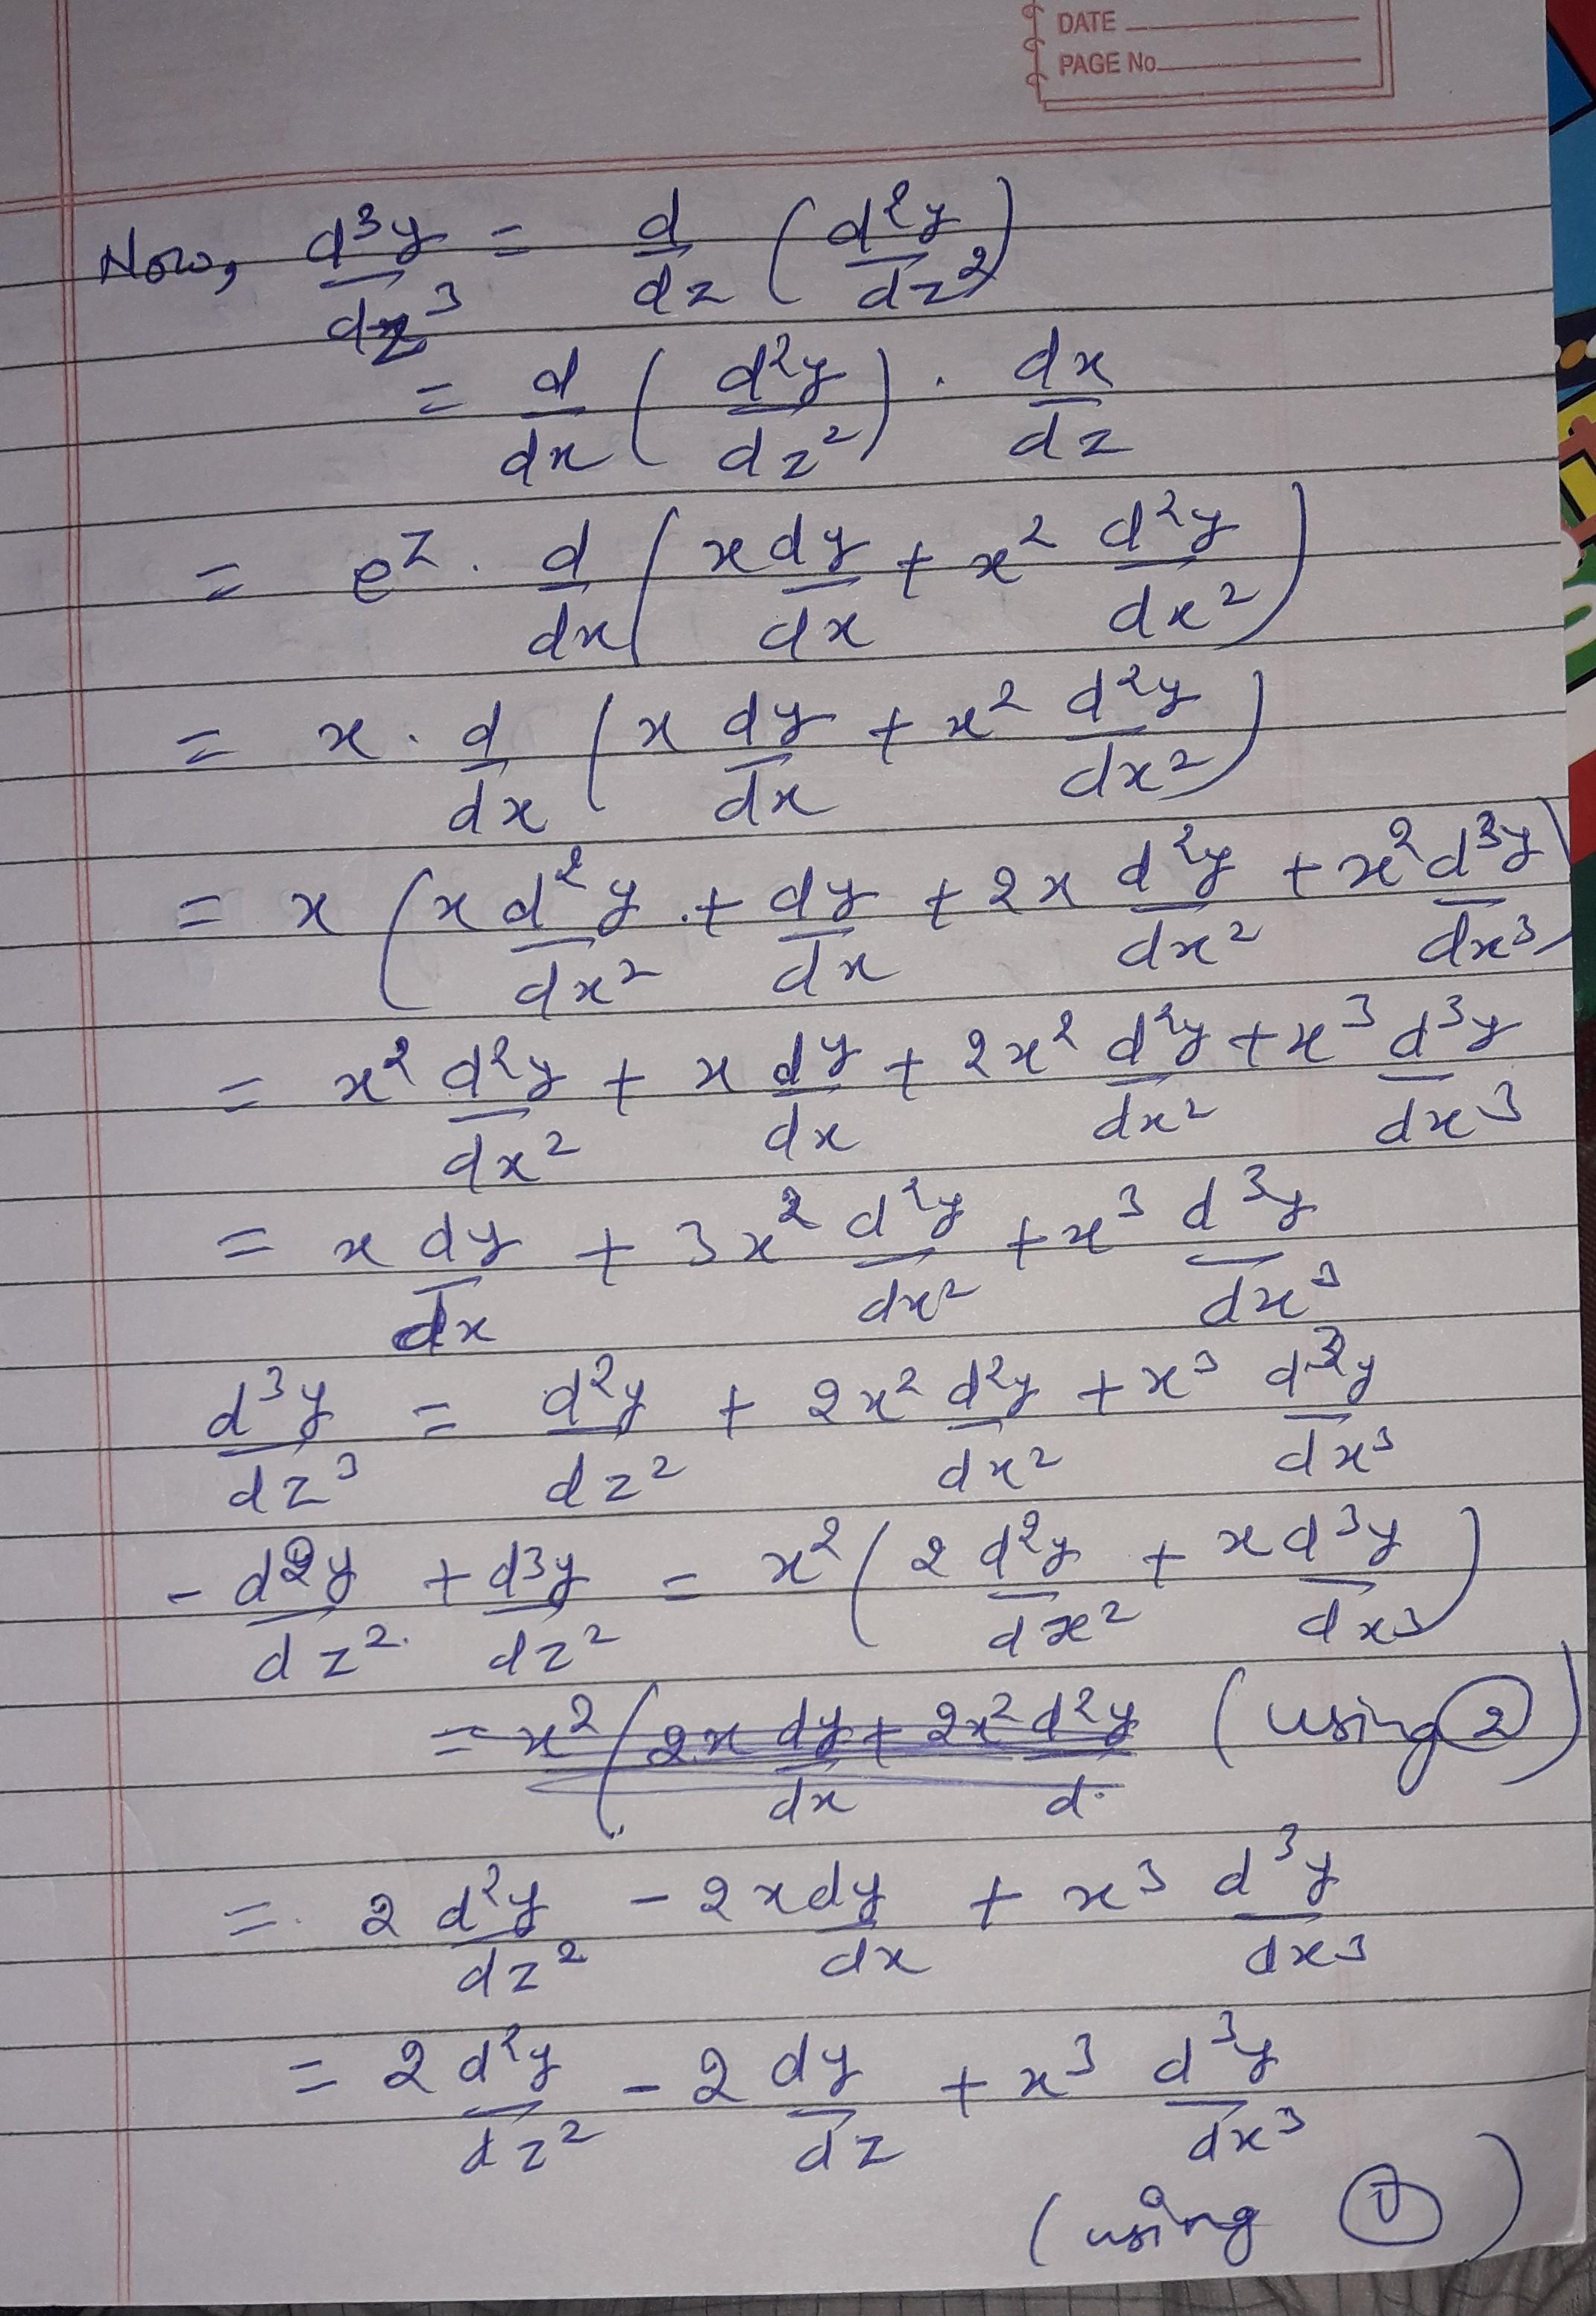 DATE
PAGE No.
Now, d³y/dz³ = d/dz (d²y/dz²)
= d/dx (d²y/dz²) · dx/dz
= e^z · d/dx (x dy/dx + x² d²y/dx²)
= x · d/dx (x dy/dx + x² d²y/dx²)
= x (x d²y/dx² + dy/dx + 2x d²y/dx² + x² d³y/dx³)
= x² d²y/dx² + x dy/dx + 2x² d²y/dx² + x³ d³y/dx³
= x dy/dx + 3x² d²y/dx² + x³ d³y/dx³
d³y/dz³ = d²y/dz² + 2x² d²y/dx² + x³ d³y/dx³
- d²y/dz² + d³y/dz² = x² (2 d²y/dx² + x d³y/dx³)
= x² (2x dy/dx + 2x² d²y/d. (using ②)
= 2 d²y/dz² - 2x dy/dx + x³ d³y/dx³
= 2 d²y/dz² - 2 dy/dz + x³ d³y/dx³
(using ①)